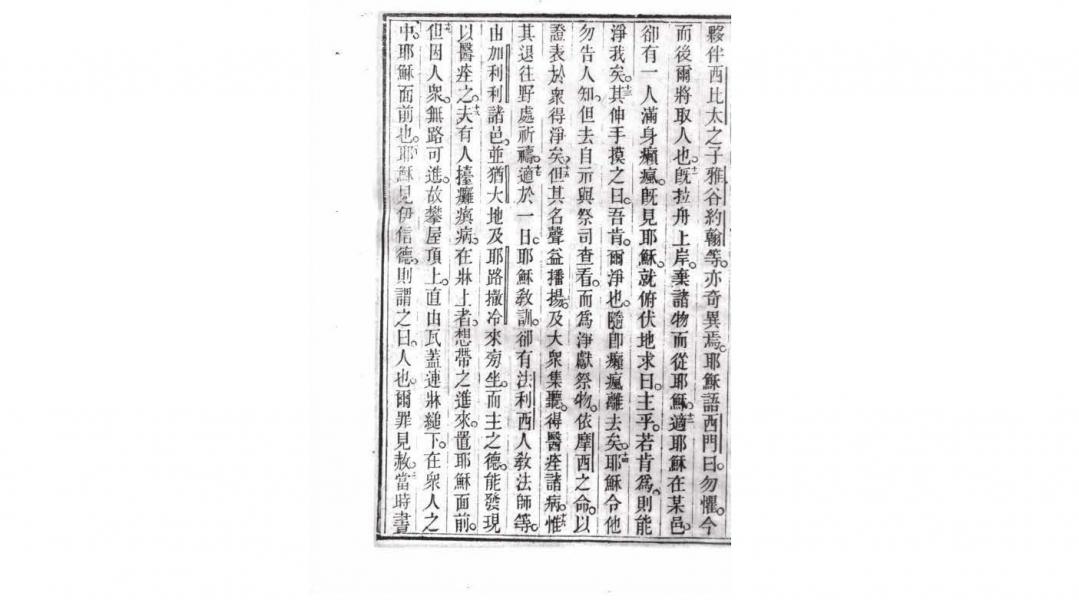 夥伴西比太之子雅谷約翰等。亦奇異焉。耶穌語西門曰。勿懼。今
而後爾將取人也。旣拉舟上岸。棄諸物而從耶穌。十二適耶穌在某邑。
卻有一人滿身癩瘋。旣見耶穌。就俯伏地求曰。主乎。若肯爲。則能
淨我矣。十三其伸手摸之曰。吾肯。爾淨也。隨卽癩瘋離去矣。十四耶穌令他
勿告人知。但去自示與祭司查看。而爲淨獻祭物。依摩西之命。以
證表於衆得淨矣。十五但其名聲益播揚。及大衆集聽。得醫痊諸病。十六惟
其退往野處祈禱。十七適於一日。耶穌敎訓。卻有法利西人敎法師等。
由加利利諸邑。並猶大地及耶路撒冷來旁坐。而主之德。能發現
以醫痊之。十八夫有人擡癱瘓病。在牀上者。想帶之進來。置耶穌面前。
但因人衆。無路可進。故攀屋頂上。直由瓦蓋連牀縋下。在衆人之
中。耶穌面前也。耶穌見伊信德。則謂之曰。人也。爾罪見赦。當時書